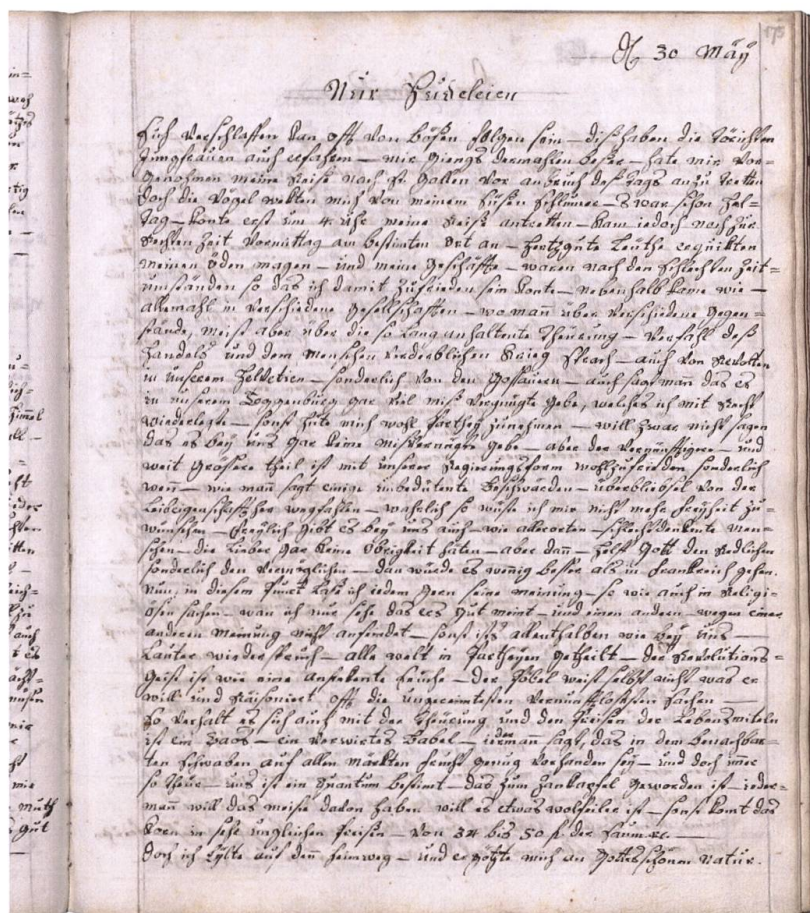 175
30 May
Nur Sudeleien
sich verschlaffen kan offt von bösen folgen sein – diß haben die törichten
Jungfrauen auch erfahren – mir giengs dermahlen beßer – hate mir vor=
genohmen meine Reise nach St. Gallen vor anbruch deß tags anzutretten
doch die Vögel wekten mich von meinem süsen schlumer – es war schon hel=
tag – konte erst um 4. uhr meine Reise antretten – kam jedoch noch zur
rechten Zeit vormittag am bestimten ort an – hertzgute leuthe erquikten
meinen öden magen – und meine geschäffte – waren nach den schlechten Zeit=
umständen so das ich damit zufrieden sein konte – nebenhalb kame wie –
allemahl in verschiedene gesellschafften – wo man über verschiedene gegen=
stände, meist aber über die so lang anhaltente Theurung – verfahl deß
Handels und dem menschen verderblichen Krieg sprach – auch von Revolten
in unserem Helvetien – sonderlich von den Gossauern – auch sagt man das es
in unserem Toggenburg gar viel miß vergnügte gebe, welches ich mit Recht
wiederlegte – sonst hüte mich wohl parthey zunehmen – will zwar nicht sagen
das es bey uns gar keine misvernügte gebe – aber der vernünfftigere – und
weit grössere theil ist mit unserer Regierungsform wohlzufrieden sonderlich
wenn – wie man sagt einige unbedeutente beschwärden – überbliebsel von der
leibeigenschafft her wegfahlen – wahrlich so wüste ich mir nicht mehr freyheit zu=
wünschen – freylich gibt es bey uns auch – wie allerorten – schlechtdenkente men=
schen – die lieber gar keine obrigkeit häten – aber dan – helff Gott den Redlichen
sonderlich den vermöglichen – dan würde es wenig besser als in frankreich gehen.
nun, in diesem punct lase ich jedem gern seine meinung – so wie auch in Religi=
osen sachen – wan ich nur sehe das ers gut meint – und einen andern – wegen einer
anderen meinung nicht anfeindet – sonst ists allenthalben wie bey uns –
lauter wiederspruch – alle welt in partheyen getheilt – der Revolutions=
geist ist wie eine ansteckente seuche – der Pöbel weist selbst nicht was er
will und Raisoniert offt die ungereimtesten vernunfftlosesten sachen –
so verhalt es sich auch mit der Theurung und den preisen der lebensmiteln
ist ein Caos – ein verwirtes Babel – jederman sagt, das in dem benachbar=
ten schwaben auf allen märkten frucht genug vorhanden sey – und doch imer
so theur – uns ist ein quantum bestimt – das zum zankapfel geworden ist – jeder=
man will das meiste davon haben will es etwas wolfeiler ist – sonst komt das
korn in sehr ungleichen preisen – von 32 bis 50 f. der
doch ich eylte auf den heimweg – und ergötzte mich an Gottes schöner Natur.